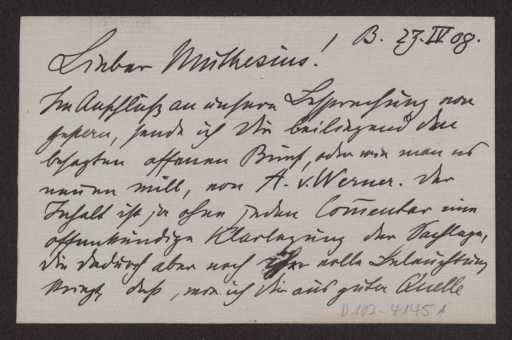 B. 23.IV 08.
Lieber Muthesius!
Im Anschluß an unsere Besprechung von
gestern, sende ich Dir beiliegend den
besagten offenen Brief, oder wie man es
nennen will, von A. v. Werner. Der
Inhalt ist ja ohne jeden Com̄entar eine
offenkundige Klarlegung der Sachlage,
die dadurch aber noch ihre volle Beleuchtung
kriegt, daß, was ich Dir aus guter Quelle
D 102-4145 A